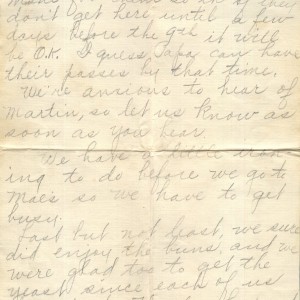 don't get here until a few
days before the 9th it will
be O.K. I guess Papa can have
their passes by that time.
We're anxious to hear of
Martin, so let us know as
soon as you hear.
We have a little iron-
ing to do before we go to
Mae's so we have to get
busy.
Last but not least, we sure
did enjoy the buns, and we
were glad too to get the
yeast since each of us